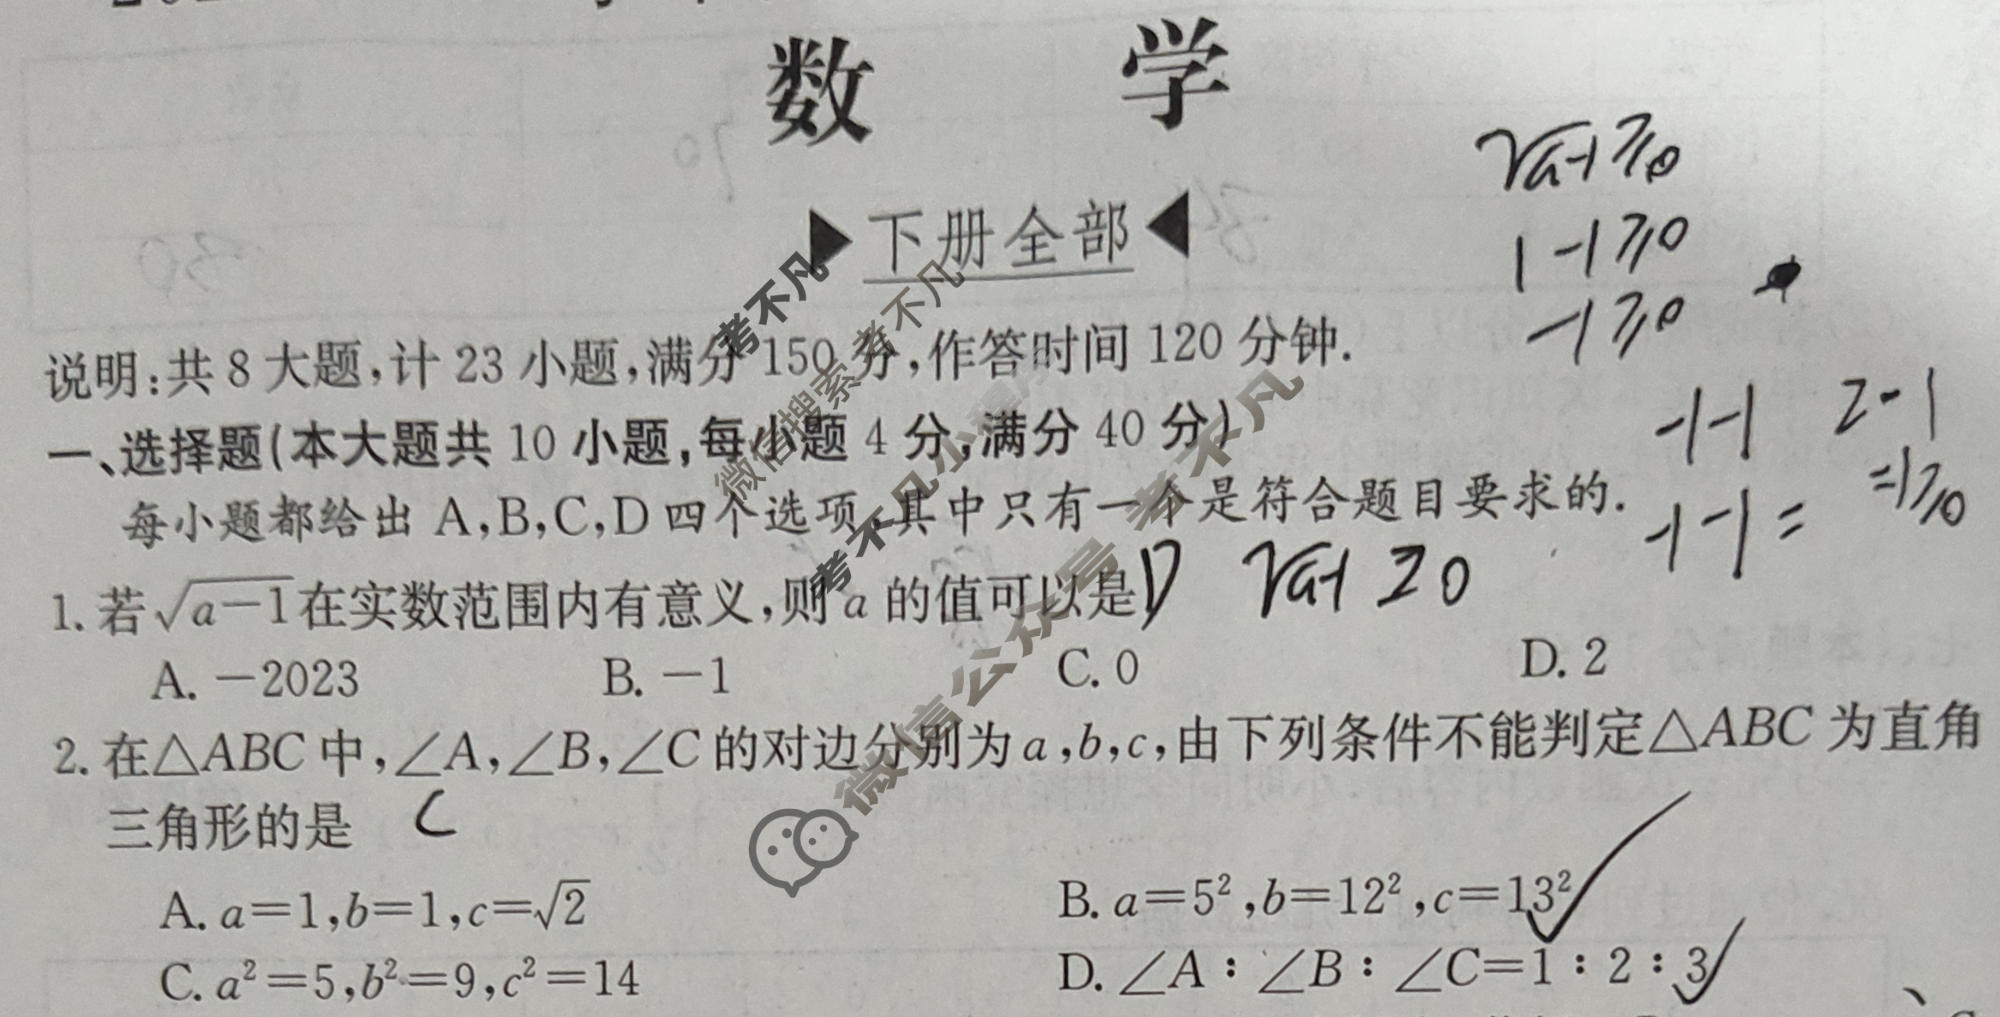 数 学
下册全部
√a-1≥0
1-1≥0
-1≥0
说明:共8大题,计23小题,满分150分,作答时间120分钟.
一、选择题(本大题共10小题,每小题4分,满分40分)
-1-1 2-1
=1≥0
-1-1=
每小题都给出A,B,C,D四个选项,其中只有一个是符合题目要求的.
1.若√a-1在实数范围内有意义,则a的值可以是D √a-1≥0
A.-2023 B.-1 C.0 D.2
2.在△ABC中,∠A,∠B,∠C的对边分别为a,b,c,由下列条件不能判定△ABC为直角
三角形的是 C
A.a=1,b=1,c=√2 B.a=5²,b=12²,c=13²
C.a²=5,b²=9,c²=14 D.∠A∶∠B∶∠C=1∶2∶3
考不凡
微信搜索 考不凡
考不凡小程序
微信公众号 考不凡